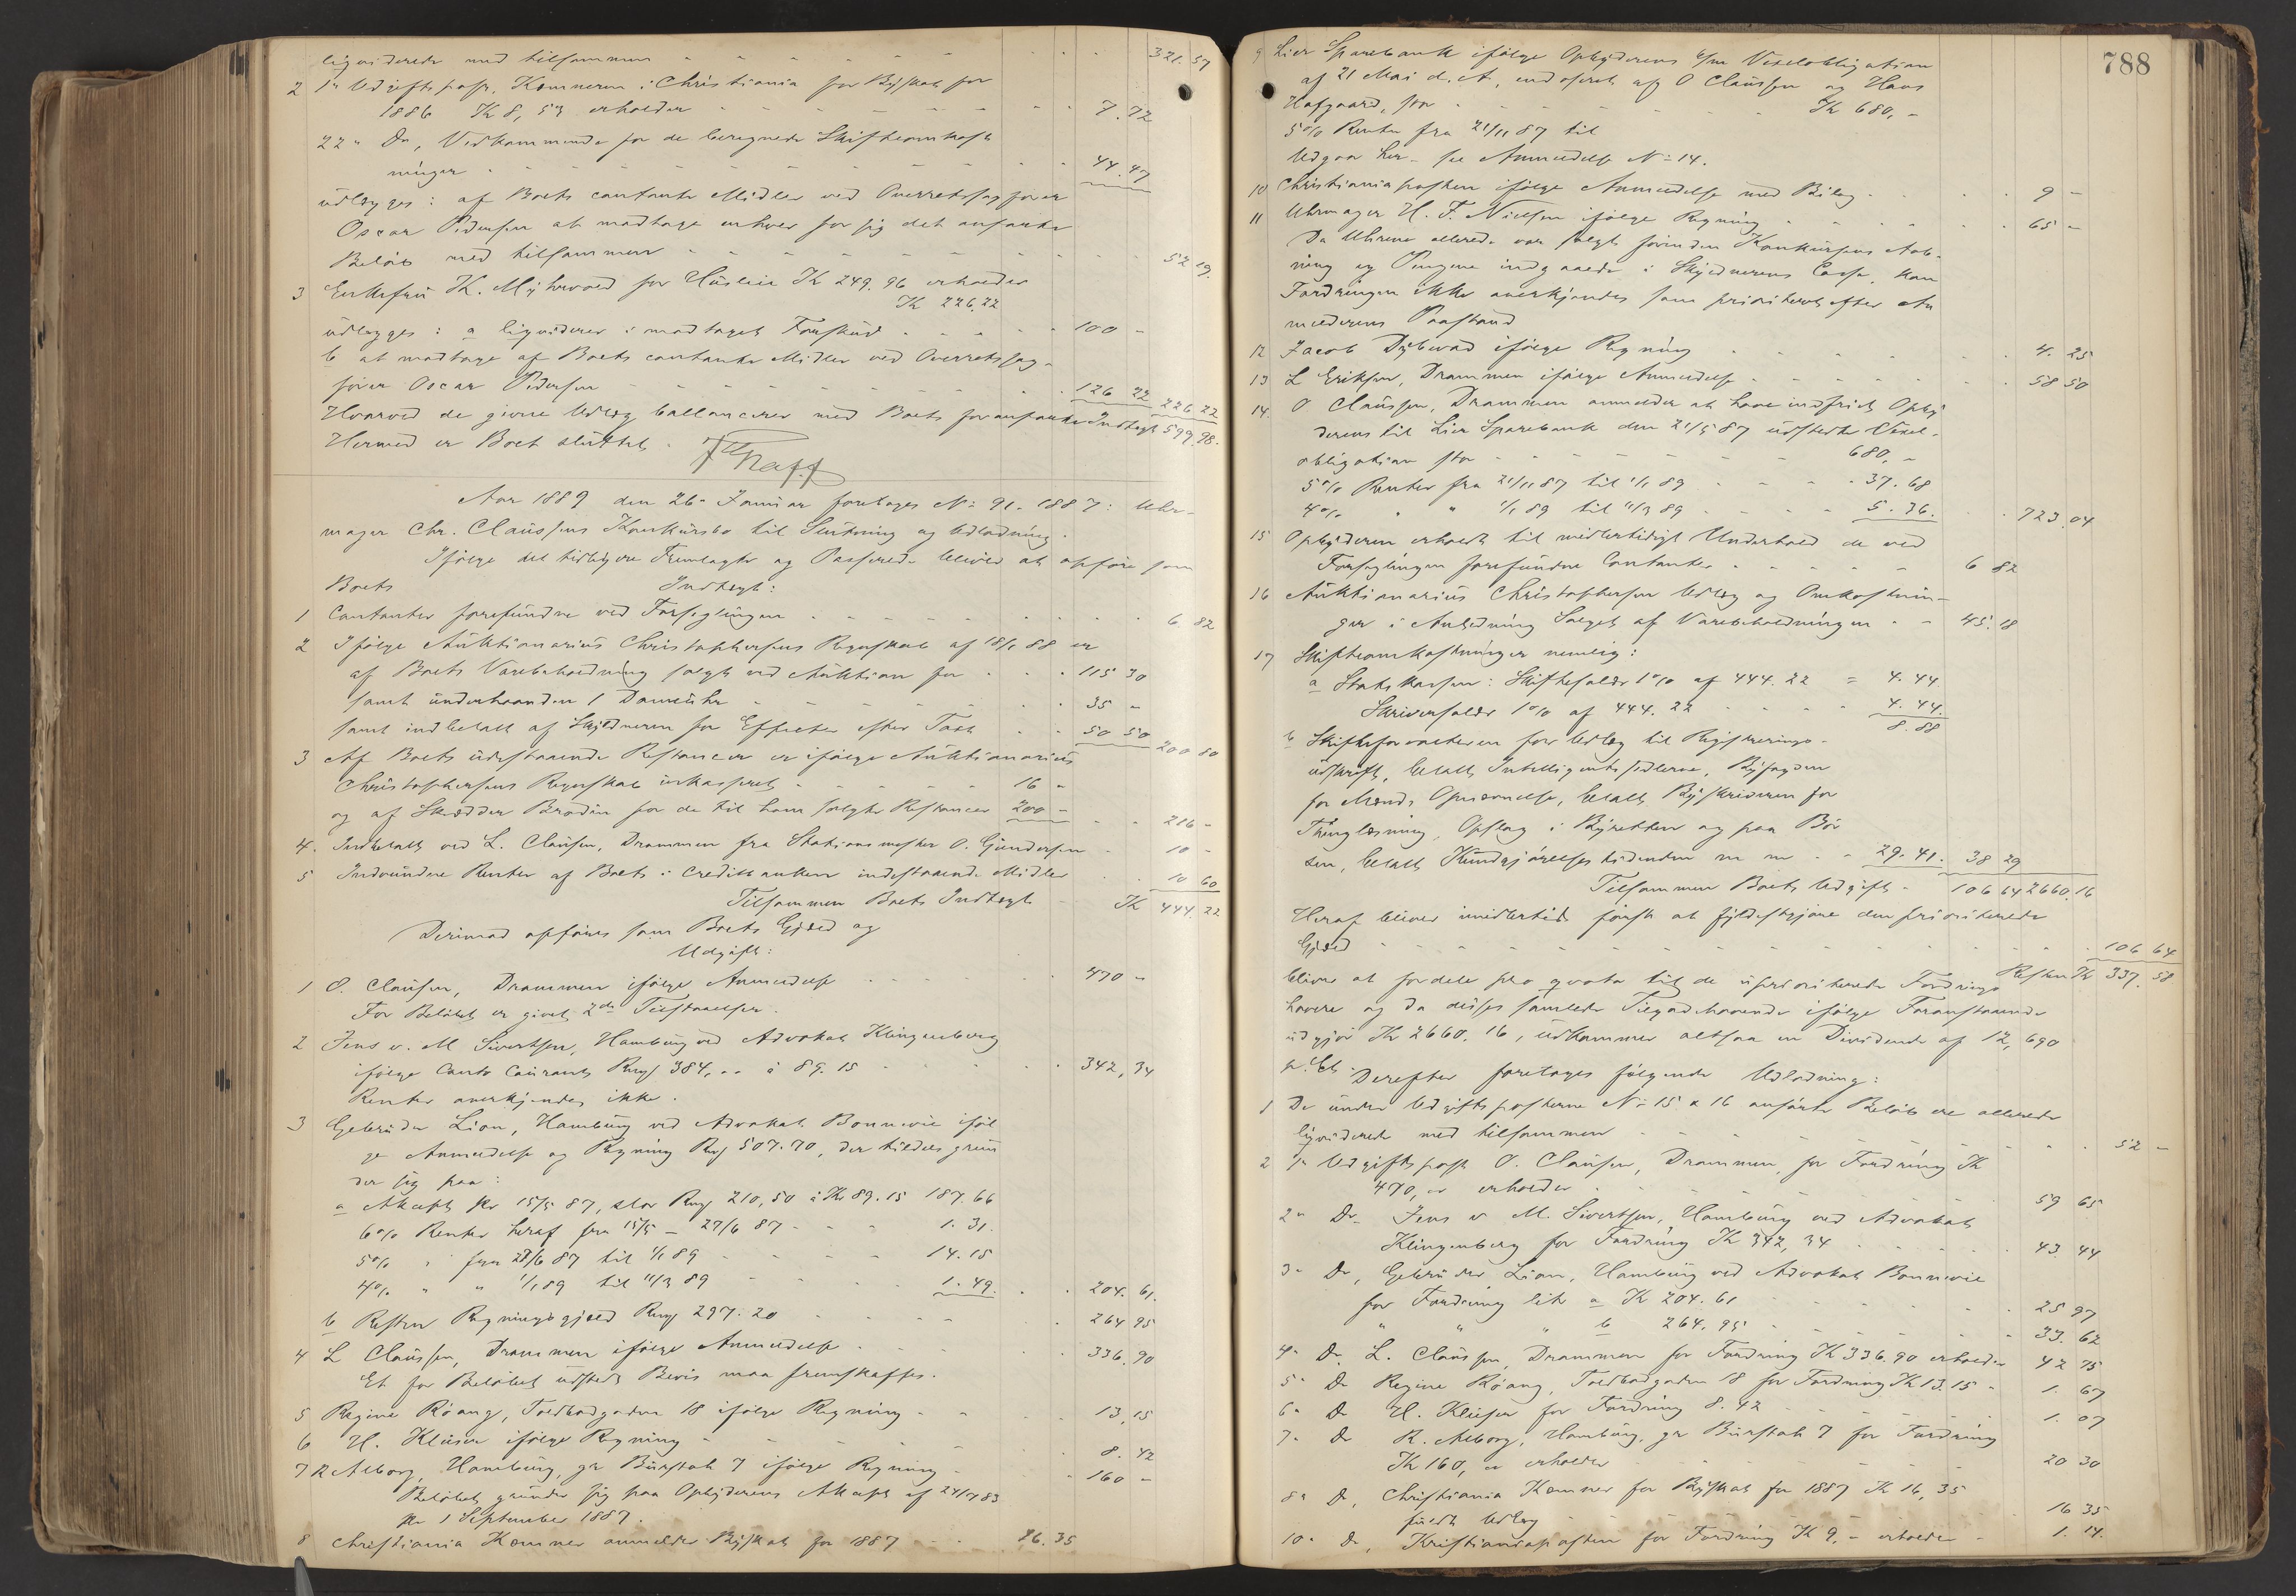 ligviderede med tilsammen 321.57
2 1ste Udgiftspost, Kæmneren i Christiania for Byskat for
1886 Kr 8,53 erholder 7.72
22de Do, Vedkommende for de beregnede Skifteomkost-
ninger 44.47
udlægges: af Boets contante Midler ved Overretssagfører
Oscar Pedersen at modtage enhver for sig det anførte
Beløb med tilsammen 52 19.
3 Enkefru K. Myhrvold for Husleie Kr 249.96 erholder
Kr 226.22
udlægges: a ligviderer i modtaget Forskud 100 -
b at modtage af Boets contante Midler ved Overretssag-
fører Oscar Pedersen 126 22 226 22
Hvorved de givne Udlæg ballancerer med Boets foranførte Indtægt 599.98.
Hermed er Boet sluttet.
Aar 1889 den 26de Januar foretages No 91. 1887: Uhr-
mager Chr. Claussens Konkursbo til Slutning og Udlodning.
Ifølge det tidligere Fremlagte og Passerede bliver at opføre som
Boets Indtægt:
1 Contanter forefundne ved Forseglingen 6.82
2 Ifølge Auktionarius Christophersens Regnskab af 18/1 88 er
af Boets Varebeholdning solgt ved Auktion for 115 30
samt underhaanden 1 Dameuhr 35 -
samt indbetalt af Skyldneren for Effecter efter Taxt 50 50 200 80
3 Af Boets udestaaende Restancer er ifølge Auktionarius
Christophersens Regnskab inkasseret 16 -
og af Skrædder Brodin for de til ham solgte Restancer 200 - 216 -
4. Indbetalt ved L. Clausen, Drammen fra Stationsmester O. Gundersen 10 -
5 Indvundne Renter af Boets i Creditbanken indestaaende Midler 10 60
Tilsammen Boets Indtægt Kr 444.22
Derimod opføres som Boets Gjæld og
Udgift:
1 O. Clausen, Drammen ifølge Anmeldelse 470 -
For Beløbet er givet 2de Tilstaaelser.
2 Jens v. M Sivertsen, Hamburg ved Advokat Klingenberg
ifølge Conto Courant Rmf 384,.. à 89.15 342,34
Renter anerkjendes ikke.
3 Gebrüder Lion, Hamburg ved Advokat Bonnevie iføl
ge Anmeldelse og Regning Rmf 507.70, der tildels grun
der sig paa:
a Akcept pr 15/5 87, stor Rmf 210,50 à Kr 89.15 187.66
6% Renter heraf fra 15/5 - 27/6 87 1.31.
5% " fra 27/6 87 til 1/1 89 14.15
4% " " 1/1 89 til 11/3 89 1.49. 204.61.
b Resten Regningsgjæld Rmf 297.20 264 95
4 L Claussen, Drammen ifølge Anmeldelse 336.90
Et for Beløbet udstedt Bevis maa fremskaffes.
5 Regine Röang, Toldbodgaden 18 ifølge Regning 13,15
6 H. Klüsen ifølge Regning 8.42
7 R Aeborg, Hamburg, gr Burstah 7 ifølge Regning 160 -
Beløbet grunder sig paa Opbyderens Akcept af 24/7 83
pr 1 September 1887.
8 Christiania Kæmner anmelder Byskat for 1887 16.35
788
9 Lier Sparebank ifølge Opbyderens 6/m Vexelobligation
af 21 Mai d. A., endosseret af O Claussen og Hans
Hofgaard, stor Kr 680,-
5% Renter fra 21/11 87 til
Udgaar her - se Anmeldelse No 14.
10 Christianiaposten ifølge Anmeldelse med Bilag 9 -
11 Uhrmager H. F. Nielsen ifølge Regning 65 -
Da Uhrene allerede var solgt førinden Konkursens Aab-
ning og Pengene indgaaede i Skyldnerens Casse, kan
Fordringen ikke anerkjendes som prioriteret efter An
melderens Paastand
12 Jacob Dybwad ifølge Regning 4.25
13 L Eriksen, Drammen ifølge Anmeldelse 58 50
14. O Claussen, Drammen anmelder at have indfriet Opby
derens til Lier Sparebank den 21/5 87 udstedte Vexel-
obligation stor 680,-
5% Renter fra 21/11 87 til 1/1 89 37.68
4% " " 1/1 89 til 11/3 89 5.36. 723.04
15 Opbyderen erholdt til midlertidigt Underhold de ved
Forseglingen forefundne Contanter 6 82
16 Auktionarius Christophersen Udlæg og Omkostnin-
ger i Anledning Salget af Varebeholdningen 45.18
17 Skifteomkostninger nemlig:
a Statskassen: Skiftefaldr 1% af 444.22 = 4.44.
Skriverfaldr 1% af 444.22 4.44.
8.88
b Skifteforvalteren for Udlæg til Registrerings-
udskrift, betalt Intelligentssedlerne, Byfogden
for Mænds Opnævnelse, betalt Byskriveren for
Thinglæsning, Opslag i Byretten og paa Bör
sen, betalt Kundgjörelsestidenden m m 29.41. 38 29
Tilsammen Boets Udgift 106 64 2660.16
Heraf bliver imidlertid først at fyldestgjøre den prioriterede
Gjæld 106 64
Resten Kr 337.58
bliver at fordele pro qvota til de uprioriterede Fordrings
havere og da disses samlede Tilgodehavende ifølge Foranstaaende
udgjør Kr 2660.16, udkommer altsaa en Dividende af 12,690
pr. Ct.
Derefter foretages følgende Udlodning:
1 De under Udgiftsposterne No 15 & 16 anførte Beløb ere allerede
ligviderede med tilsammen 52 -
2 1ste Udgiftspost O. Clausen, Drammen, for Fordring Kr
470, .. erholder 59 65
2den Do. Jens v M. Sivertsen, Hamburg ved Advokat
Klingenberg for Fordring Kr 342,34 43.44
3de Do, Gebrüder Lion, Hamburg ved Advokat Bonnevie
for Fordring litr a Kr 204.61 25 97
" " " b 264.95 33.62
4de Do. L. Claussen, Drammen for Fordring Kr 336.90 erholder 42 75
5te Do Regine Röang, Toldbodgaden 18 for Fordring Kr 13.15 1.67
6te Do H. Klüsen for Fordring 8.42 1.07
7de Do R. Aeborg, Hamburg, gr Burstah 7 for Fordring
Kr 160, .. erholder 20 30
8de Do, Christiania Kæmner for Byskat for 1887 Kr 16,35
fuldt Udlæg 16 35
10de Do, Kristianiaposten for Fordring Kr 9,- erholder 1.14.